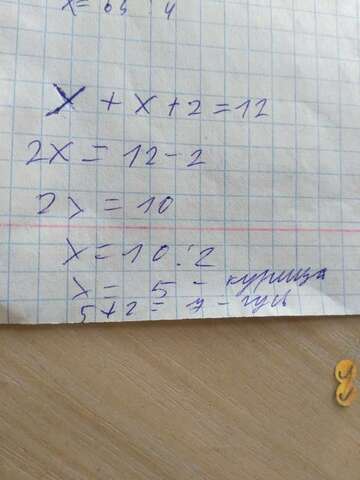 x = 65 : 4
x + x + 2 = 12
2x = 12 - 2
2x = 10
x = 10 : 2
x = 5 - курица
5 + 2 = 7 - гусь